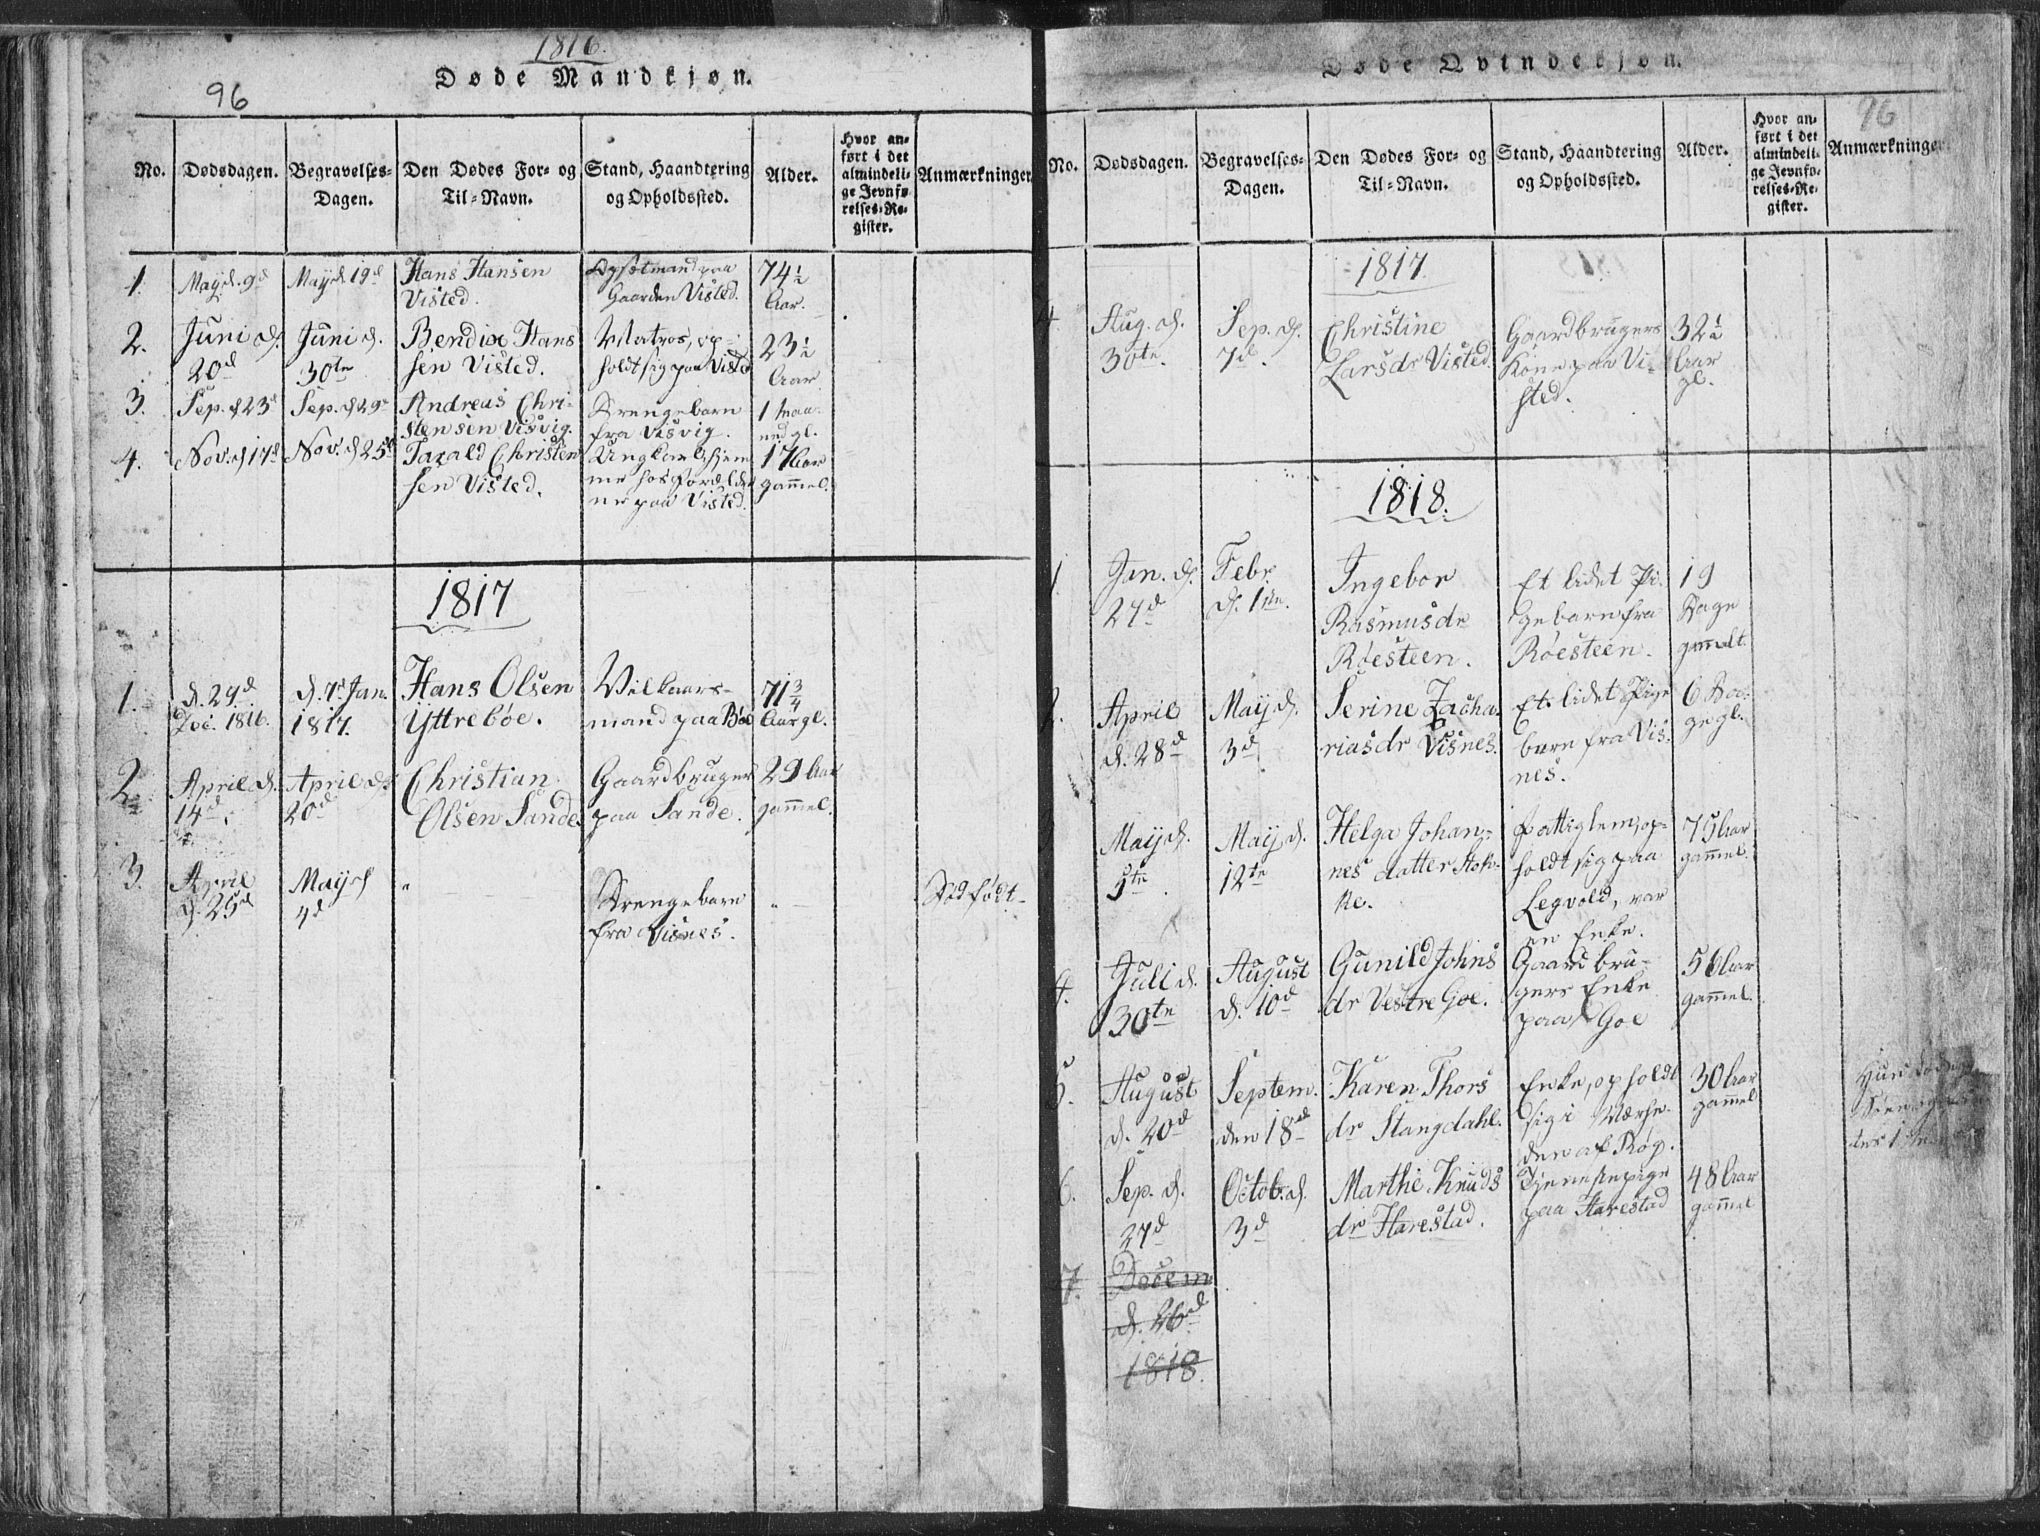 1816.
Døde Mandkjøn.
96
No.
Dødsdagen.
Begravelses-
Dagen.
Den Dødes For- og
Til-Navn.
Stand, Haandtering
og Opholdssted.
Alder.
Hvor an-
ført i det
almindeli-
ge Jevnfø-
relses-Re-
gister.
Anmærkninger
1.
May d. 9d
May d. 19d
Hans Hansen
Visted.
Opsetmand paa
Gaarden Visted.
74 1/2
Aar.
2.
Juni d.
20d
Juni d.
30te
Bendix Hans
sen Visted.
Matros, op-
holdt sig paa Visted
23 1/2
Aar
3.
Sep. d 23d
Sep. d 29d
Andreas Chri-
stensen Visvig.
Drengebarn
fra Visvig.
1 Maa-
ned gl.
4.
Nov. d 17d
Nov. d 25d
Tarald Christen
sen Visted.
Ungkarl hjem
me hos Forældre
ne paa Visted.
17 Aar
gammel.
1817
1.
d. 29d
Dec. 1816.
d. 7d Jan.
1817.
Hans Olsen
Yttrebøe.
Vilkaars-
mand paa Bøe
71 3/4
Aar gl.
2.
April d.
14d
April d.
20d
Christian
Olsen Sande.
Gaardbruger
paa Sande.
29 Aar
gammel.
3.
April
d. 25d
May d
4d
Drengebarn
fra Visnes.
Dødfødt
Døde Qvindekjøn.
96
No.
Dødsdagen.
Begravelses-
Dagen.
Den Dødes For- og
Til-Navn.
Stand, Haandtering
og Opholdssted.
Alder.
Hvor an-
ført i det
almindeli-
ge Jevnfø-
relses-Re-
gister.
Anmærkninger
1817
4.
Aug. d.
30te.
Sep. d.
7d.
Christine
Larsdr Visted.
Gaardbrugers
Kone paa Vi-
sted.
32 1/2
Aar
gl.
1818.
1
Jan. d.
27d
Febr.
d. 1ste.
Ingebor
Rasmusdr
Røesteen.
Et lidet Pi-
gebarn fra
Røesteen.
19
Dage
gammelt.
April
d. 28d
May d.
3d
Serine Zacha-
riasdr Visnes.
Et lidet Pige
barn fra Vis-
nes.
6 Da-
ge gl.
May d.
5te
May d.
12te
Helga Johan-
nes datter
Fattiglem, op-
holdt sig paa
Legvold, var
en Enke.
75 Aar
gammel.
4.
Juli d.
30te
August
d. 10d
Gunild Johns
dr Vestre Goe.
Gaardbru-
gers Enke
paa Goe
56 Aar
gammel.
5.
August
d. 20d
Septem.
den 18d
Karen Thors
dr Stangdahl.
Enke, opholdt
sig i Nærhe-
den af Røg.
30 Aar
gammel
6.
Sep. d.
27d
Octob. d.
3d
Marthe Knuds
dr Harestad.
Tjenestepige
paa Harestad
48 Aar
gammel
7.
Decem
d. 26d
1818.